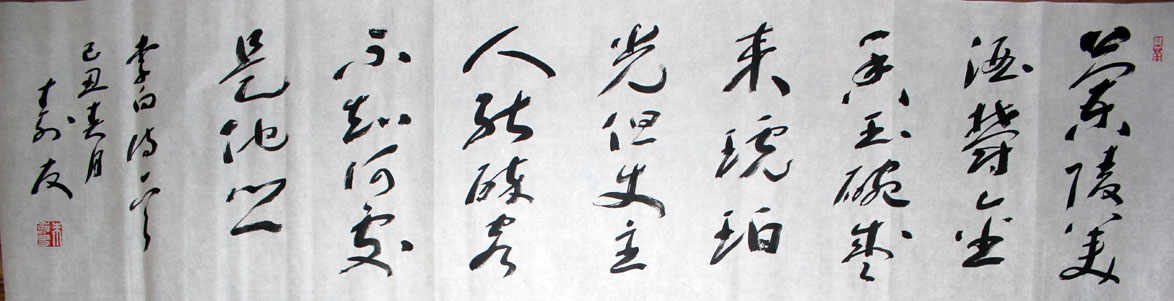 蘭陵美
酒鬱金
香玉碗盛
来琥珀
光但使主
人能醉客
不知何處
是他鄉
李白诗一首
己丑春月
寿友